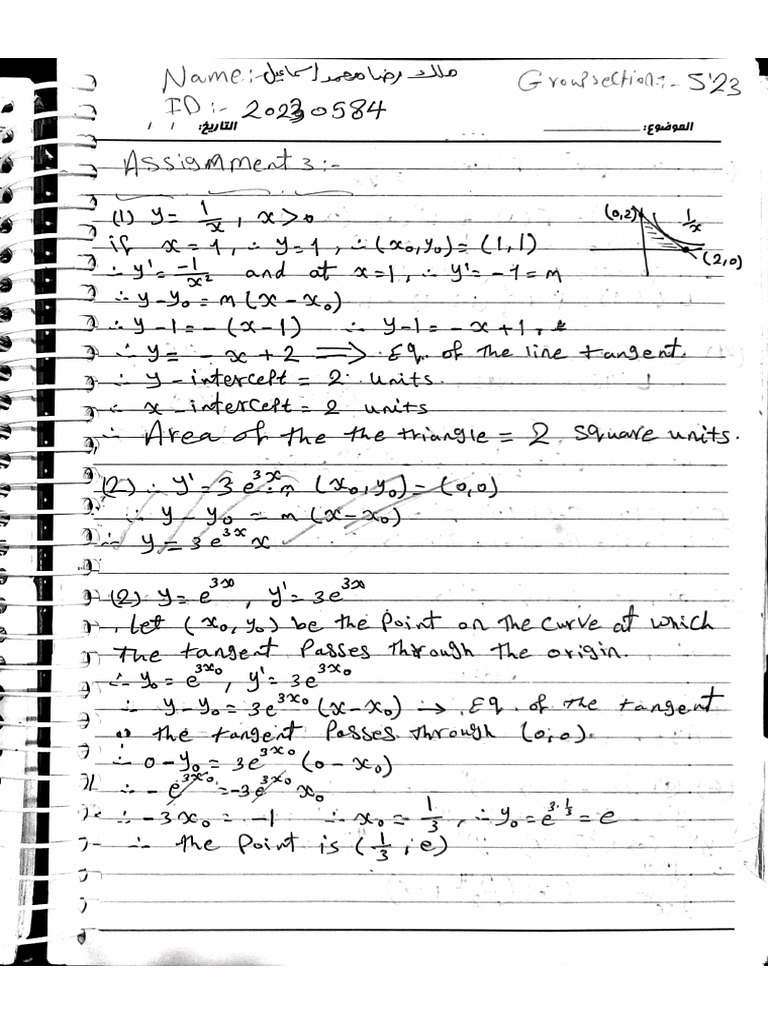 Name:- ملك رضا محمد اسماعيل
Group section:- S'23
ID:- 20230584
التاريخ: / /
الموضوع:
Assignment 3:-
(1) y = 1/x , x > 0
if x = 1, ∴ y = 1, ∴ (x₀, y₀) = (1, 1)
(0,2)
1/x
(2,0)
∴ y' = -1/x² and at x = 1, ∴ y' = -1 = m
∴ y - y₀ = m (x - x₀)
∴ y - 1 = -(x - 1) ∴ y - 1 = -x + 1,
∴ y = - x + 2 ⟹ Eq. of the line tangent.
∴ y - intercept = 2 units.
∴ x - intercept = 2 units
∴ Area of the the triangle = 2 square units.
(2) ∴ y' = 3 e^3x = m (x₀, y₀) = (0, 0)
∴ y - y₀ = m (x - x₀)
∴ y = 3e^3x x
(2) y = e^3x , y' = 3e^3x
, let (x₀, y₀) be the point on the curve at which
the tangent passes through the origin.
∴ y₀ = e^3x₀ , y' = 3e^3x₀
∴ y - y₀ = 3e^3x₀ (x - x₀) → Eq. of the tangent
∵ the tangent passes through (0,0).
∴ 0 - y₀ = 3e^3x₀ (0 - x₀)
∴ - e^3x₀ = -3e^3x₀ x₀
∴ -3x₀ = -1 ∴ x₀ = 1/3 , ∴ y₀ = e^3·1/3 = e
∴ the point is (1/3 , e)